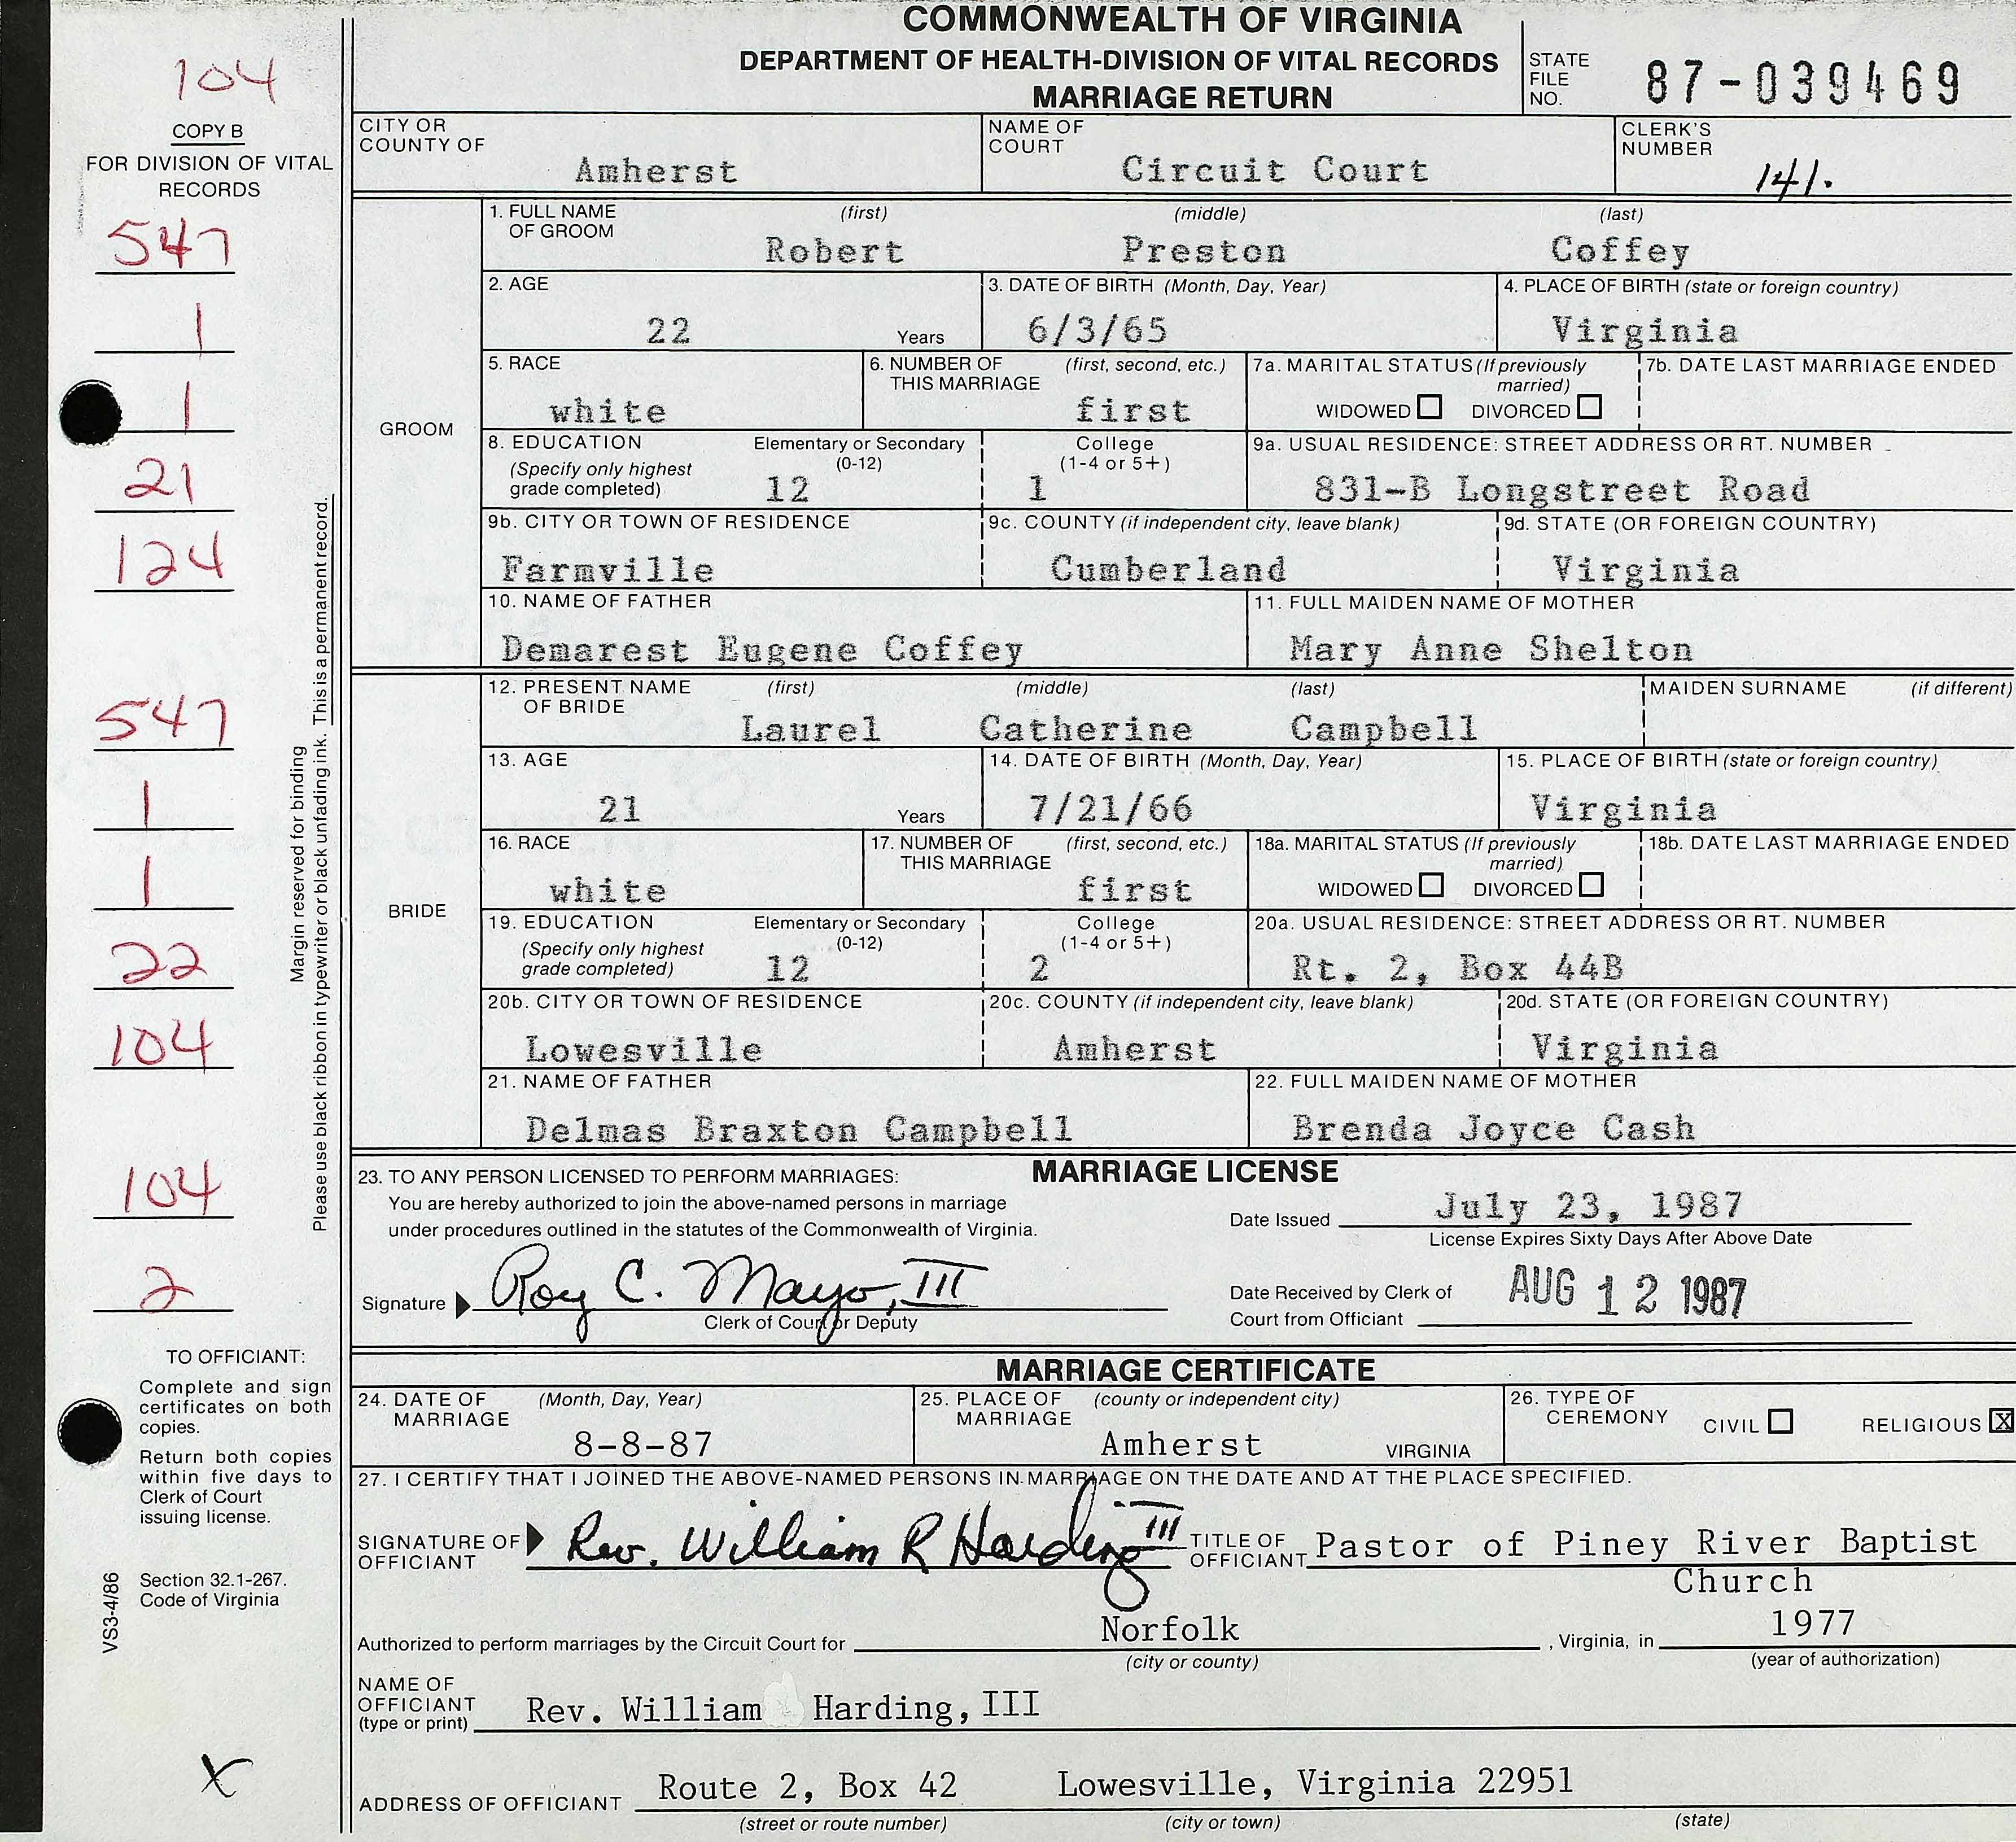 COMMONWEALTH OF VIRGINIA
DEPARTMENT OF HEALTH-DIVISION OF VITAL RECORDS
MARRIAGE RETURN
STATE FILE NO. 87-039469
104
COPY B
FOR DIVISION OF VITAL
RECORDS
547
1
1
21
124
547
1
1
22
104
104
2
Margin reserved for binding
Please use black ribbon in typewriter or black unfading ink. This is a permanent record.
TO OFFICIANT:
Complete and sign
certificates on both
copies.
Return both copies
within five days to
Clerk of Court
issuing license.
Section 32.1-267.
Code of Virginia
VS3-4/86
X
CITY OR COUNTY OF Amherst
NAME OF COURT Circuit Court
CLERK'S NUMBER 141.
GROOM
1. FULL NAME OF GROOM (first) (middle) (last)
Robert Preston Coffey
2. AGE 22 Years
3. DATE OF BIRTH (Month, Day, Year) 6/3/65
4. PLACE OF BIRTH (state or foreign country) Virginia
5. RACE white
6. NUMBER OF THIS MARRIAGE (first, second, etc.) first
7a. MARITAL STATUS (If previously married) WIDOWED DIVORCED
7b. DATE LAST MARRIAGE ENDED
8. EDUCATION (Specify only highest grade completed) Elementary or Secondary (0-12) 12
College (1-4 or 5+) 1
9a. USUAL RESIDENCE: STREET ADDRESS OR RT. NUMBER 831-B Longstreet Road
9b. CITY OR TOWN OF RESIDENCE Farmville
9c. COUNTY (if independent city, leave blank) Cumberland
9d. STATE (OR FOREIGN COUNTRY) Virginia
10. NAME OF FATHER Demarest Eugene Coffey
11. FULL MAIDEN NAME OF MOTHER Mary Anne Shelton
BRIDE
12. PRESENT NAME OF BRIDE (first) (middle) (last)
Laurel Catherine Campbell
MAIDEN SURNAME (if different)
13. AGE 21 Years
14. DATE OF BIRTH (Month, Day, Year) 7/21/66
15. PLACE OF BIRTH (state or foreign country) Virginia
16. RACE white
17. NUMBER OF THIS MARRIAGE (first, second, etc.) first
18a. MARITAL STATUS (If previously married) WIDOWED DIVORCED
18b. DATE LAST MARRIAGE ENDED
19. EDUCATION (Specify only highest grade completed) Elementary or Secondary (0-12) 12
College (1-4 or 5+) 2
20a. USUAL RESIDENCE: STREET ADDRESS OR RT. NUMBER Rt. 2, Box 44B
20b. CITY OR TOWN OF RESIDENCE Lowesville
20c. COUNTY (if independent city, leave blank) Amherst
20d. STATE (OR FOREIGN COUNTRY) Virginia
21. NAME OF FATHER Delmas Braxton Campbell
22. FULL MAIDEN NAME OF MOTHER Brenda Joyce Cash
23. TO ANY PERSON LICENSED TO PERFORM MARRIAGES:
MARRIAGE LICENSE
You are hereby authorized to join the above-named persons in marriage
under procedures outlined in the statutes of the Commonwealth of Virginia.
Date Issued July 23, 1987
License Expires Sixty Days After Above Date
Signature Roy C. Mayo, III
Clerk of Court or Deputy
Date Received by Clerk of Court from Officiant AUG 12 1987
MARRIAGE CERTIFICATE
24. DATE OF MARRIAGE (Month, Day, Year) 8-8-87
25. PLACE OF MARRIAGE (county or independent city) Amherst VIRGINIA
26. TYPE OF CEREMONY CIVIL RELIGIOUS X
27. I CERTIFY THAT I JOINED THE ABOVE-NAMED PERSONS IN MARRIAGE ON THE DATE AND AT THE PLACE SPECIFIED.
SIGNATURE OF OFFICIANT Rev. William R Harding III
TITLE OF OFFICIANT Pastor of Piney River Baptist
Church
Authorized to perform marriages by the Circuit Court for Norfolk, Virginia, in 1977
(city or county) (year of authorization)
NAME OF OFFICIANT (type or print) Rev. William Harding, III
ADDRESS OF OFFICIANT Route 2, Box 42 Lowesville, Virginia 22951
(street or route number) (city or town) (state)